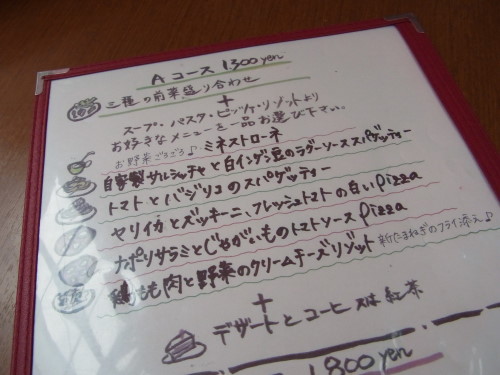 Aコース 1300yen
三種の前菜盛り合わせ
+
スープ・パスタ・ピッツァ・リゾットより
お好きなメニューを一品お選び下さい。
お野菜ごろごろ♪ ミネストローネ
自家製サルシッチャと白インゲン豆のラグーソーススパゲッティー
トマトとバジリコのスパゲッティー
ヤリイカとズッキーニ、フレッシュトマトの白いpizza
ナポリサラミとじゃがいものトマトソースpizza
鶏もも肉と野菜のクリームチーズリゾット 新たまねぎのフライ添え♪
+
デザートとコーヒー又は紅茶
1,800yen